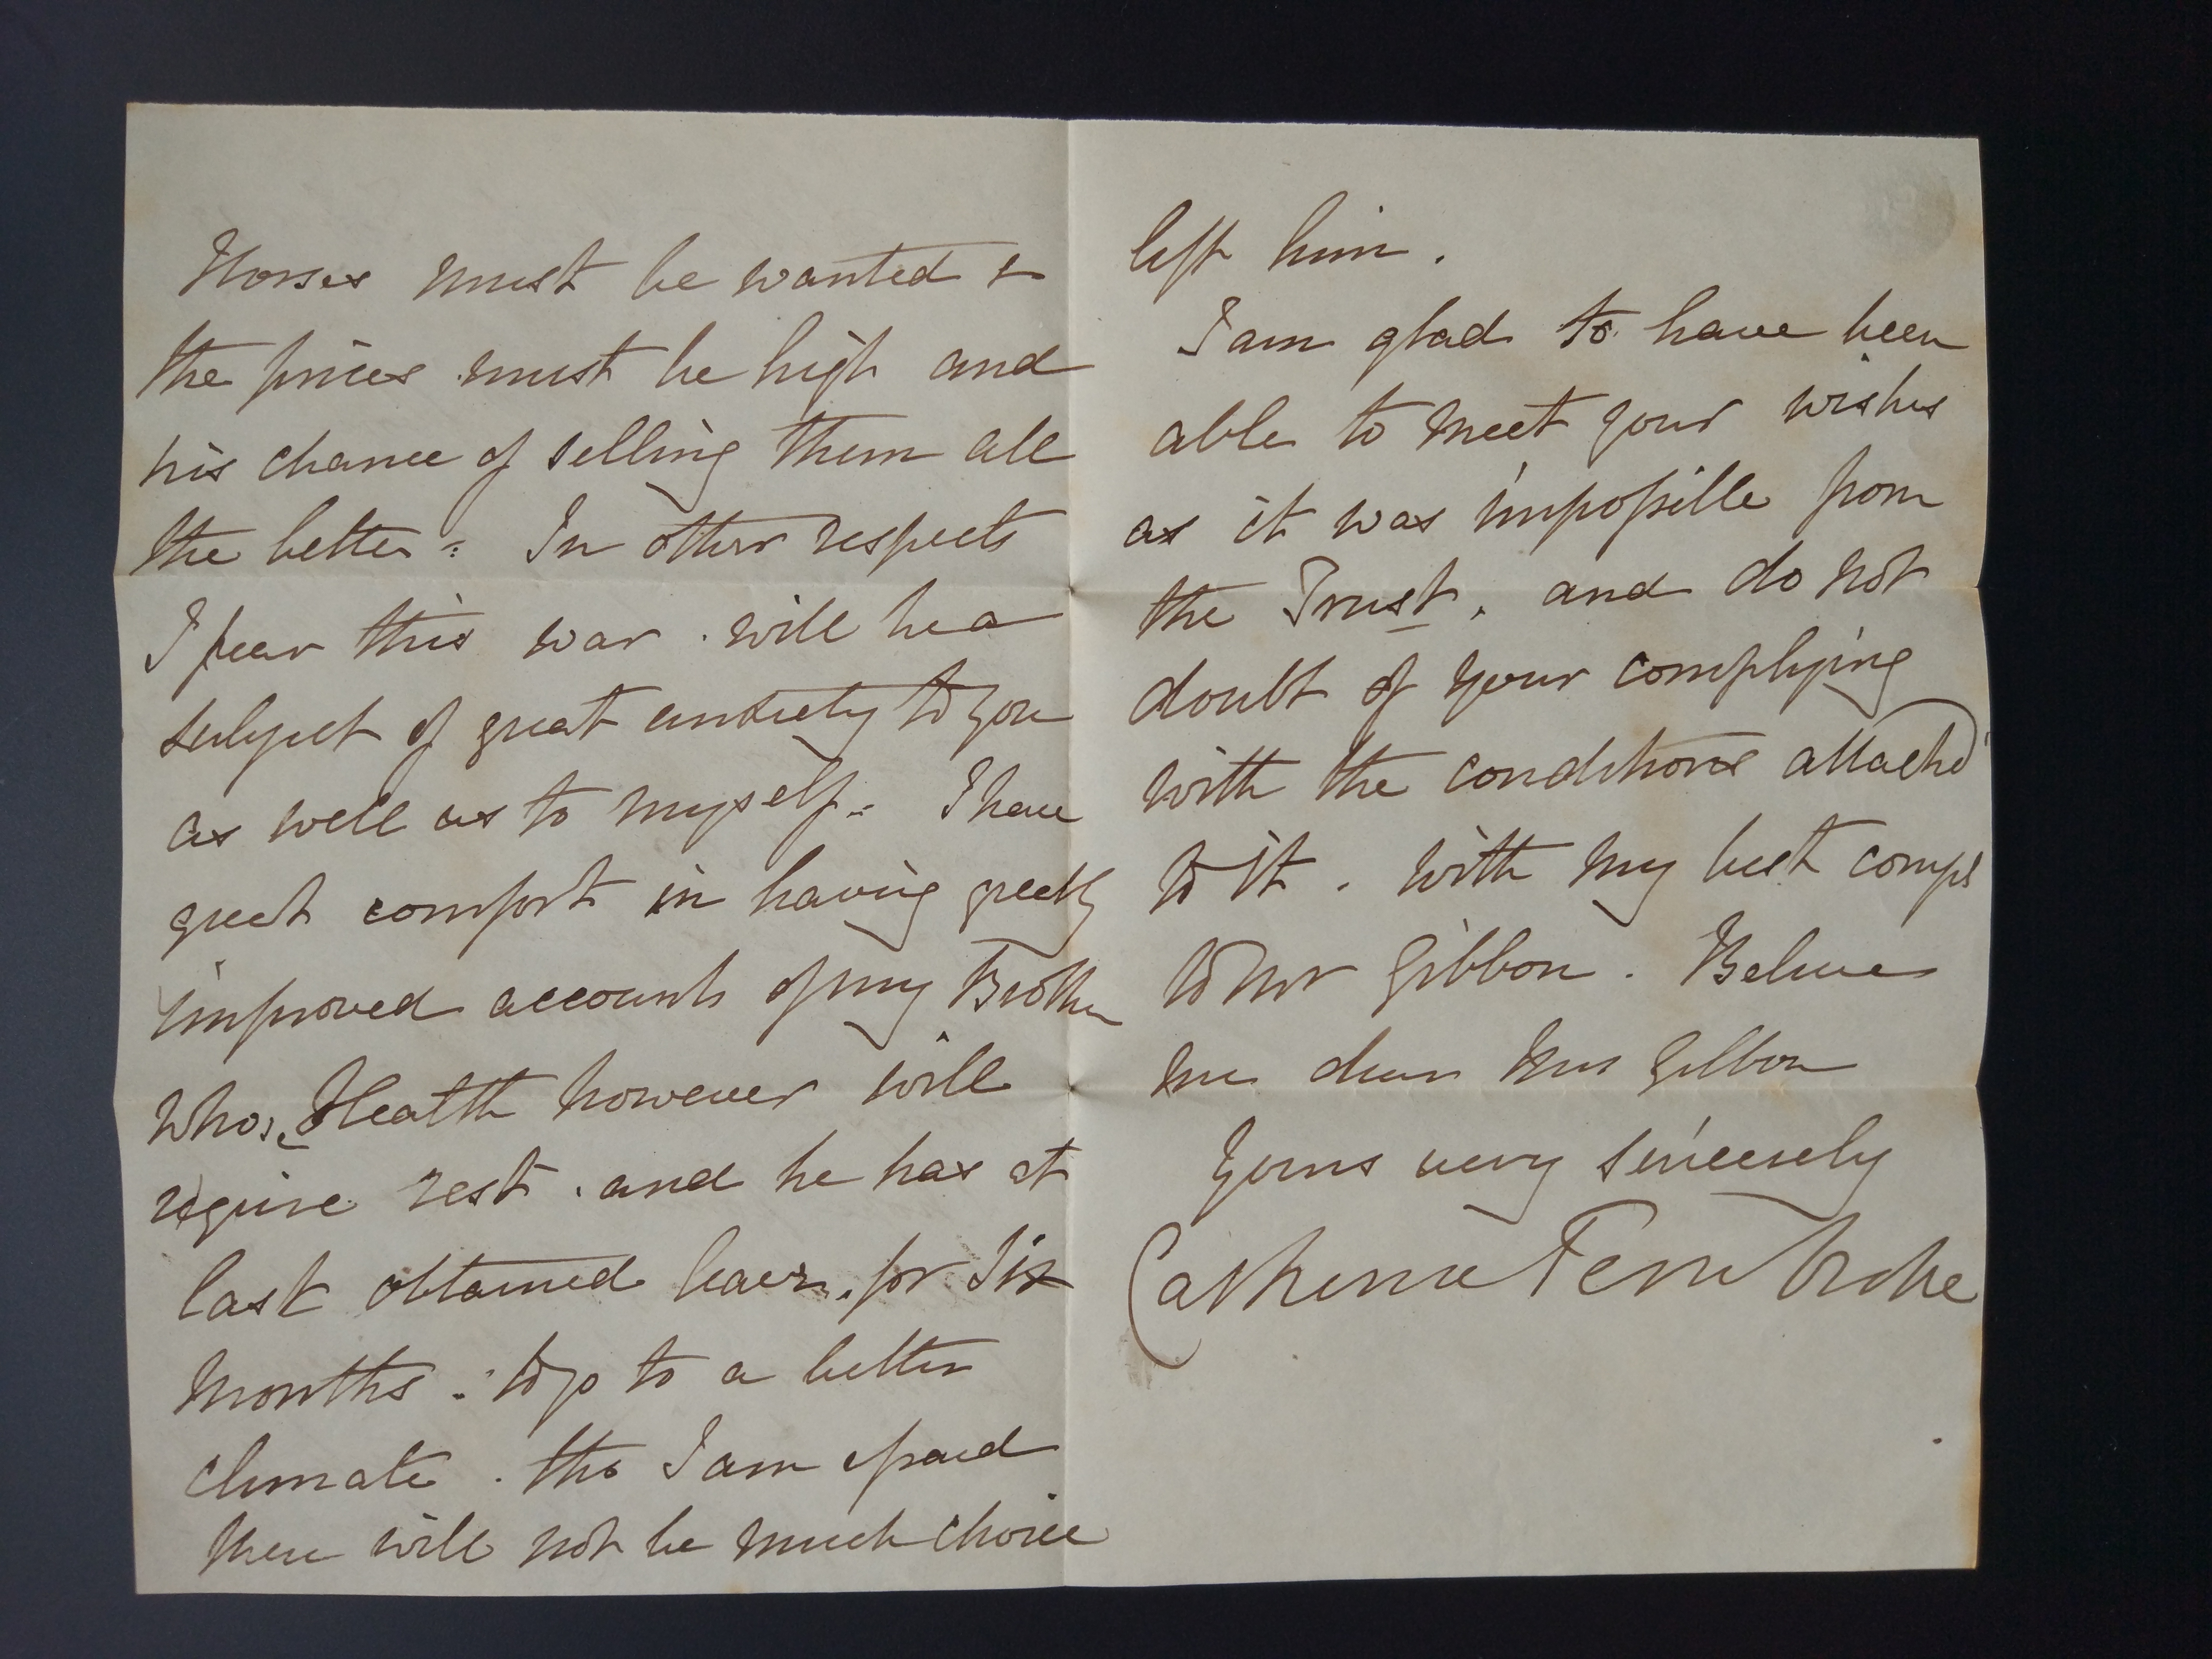 Horses must be wanted &
the prices must be high and
his chance of selling them all
the better = In other respects
I fear this war . will be a
subject of great anxiety to you
as well as to myself = I have
great comfort in having greatly
improved accounts of my Brother
whose Health however will
require rest . and he has at
last obtained leave . for Six
Months = to go to a better
climate . tho I am afraid
there will not be much choice
left him .
I am glad to have been
able to meet your wishes
as it was impossible from
the Trust , and do not
doubt of your complying
with the conditions attachd
to it . with my best compts
to Mr Gibbon . Believe
me dear Mrs Gibbon
Yours very sincerely
Catherine Pembroke